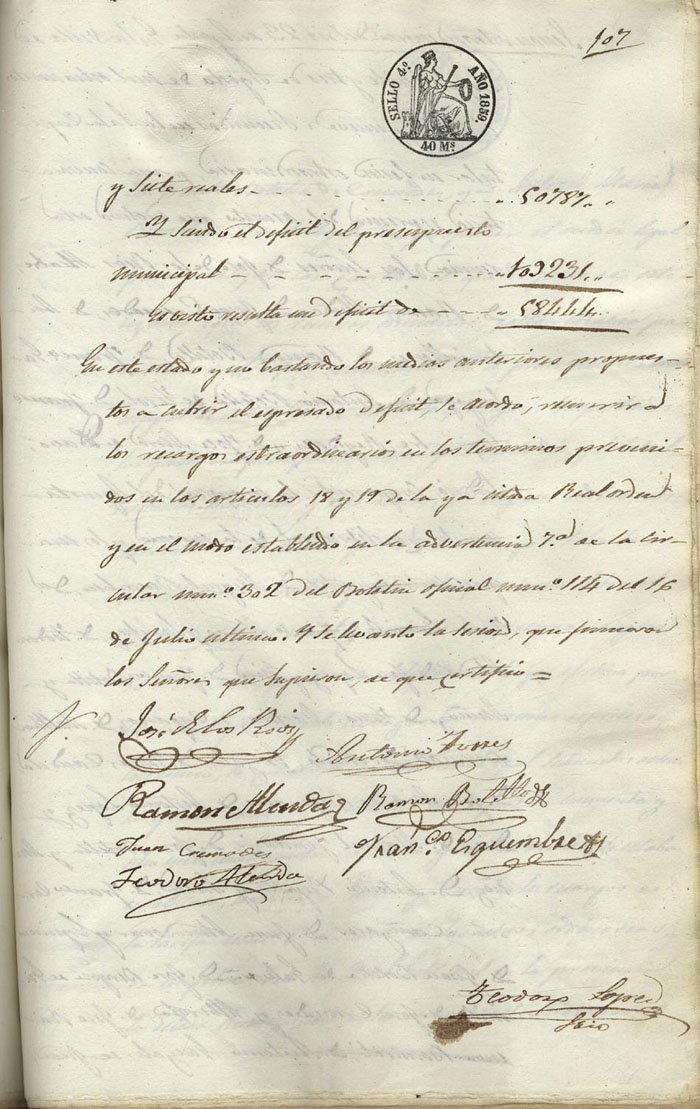 107
SELLO 4º. AÑO 1859.
40 Ms.
y siete reales - . . . . . . . „ 50787. „
Y siendo el deficit del presupuesto
municipal - - - - - - - - „ 109231. „
es visto resulta un deficit de - - - „ 58444. „
En este estado y no bastando los medios anteriores propues-
tos a cubrir el espresado deficit, se acordó, recurrir á
los recargos estraordinarios en los terminos preveni-
dos en los articulos 18 y 19 de la ya citada Real orden
y en el modo establecido en la advertencia 7.ª de la Cir-
cular num.º 302 del Boletin oficial num.º 114 del 16
de Julio ultimo. Y se levantó la sesion, que firmaron
los Señores que supieron, de que certifico =
José de los Rios
Antonio Torres
Ramon
Ramon
Juan Cremades
Fran.co Esquembre
Teodoro
Teodoro Lopez
Srio